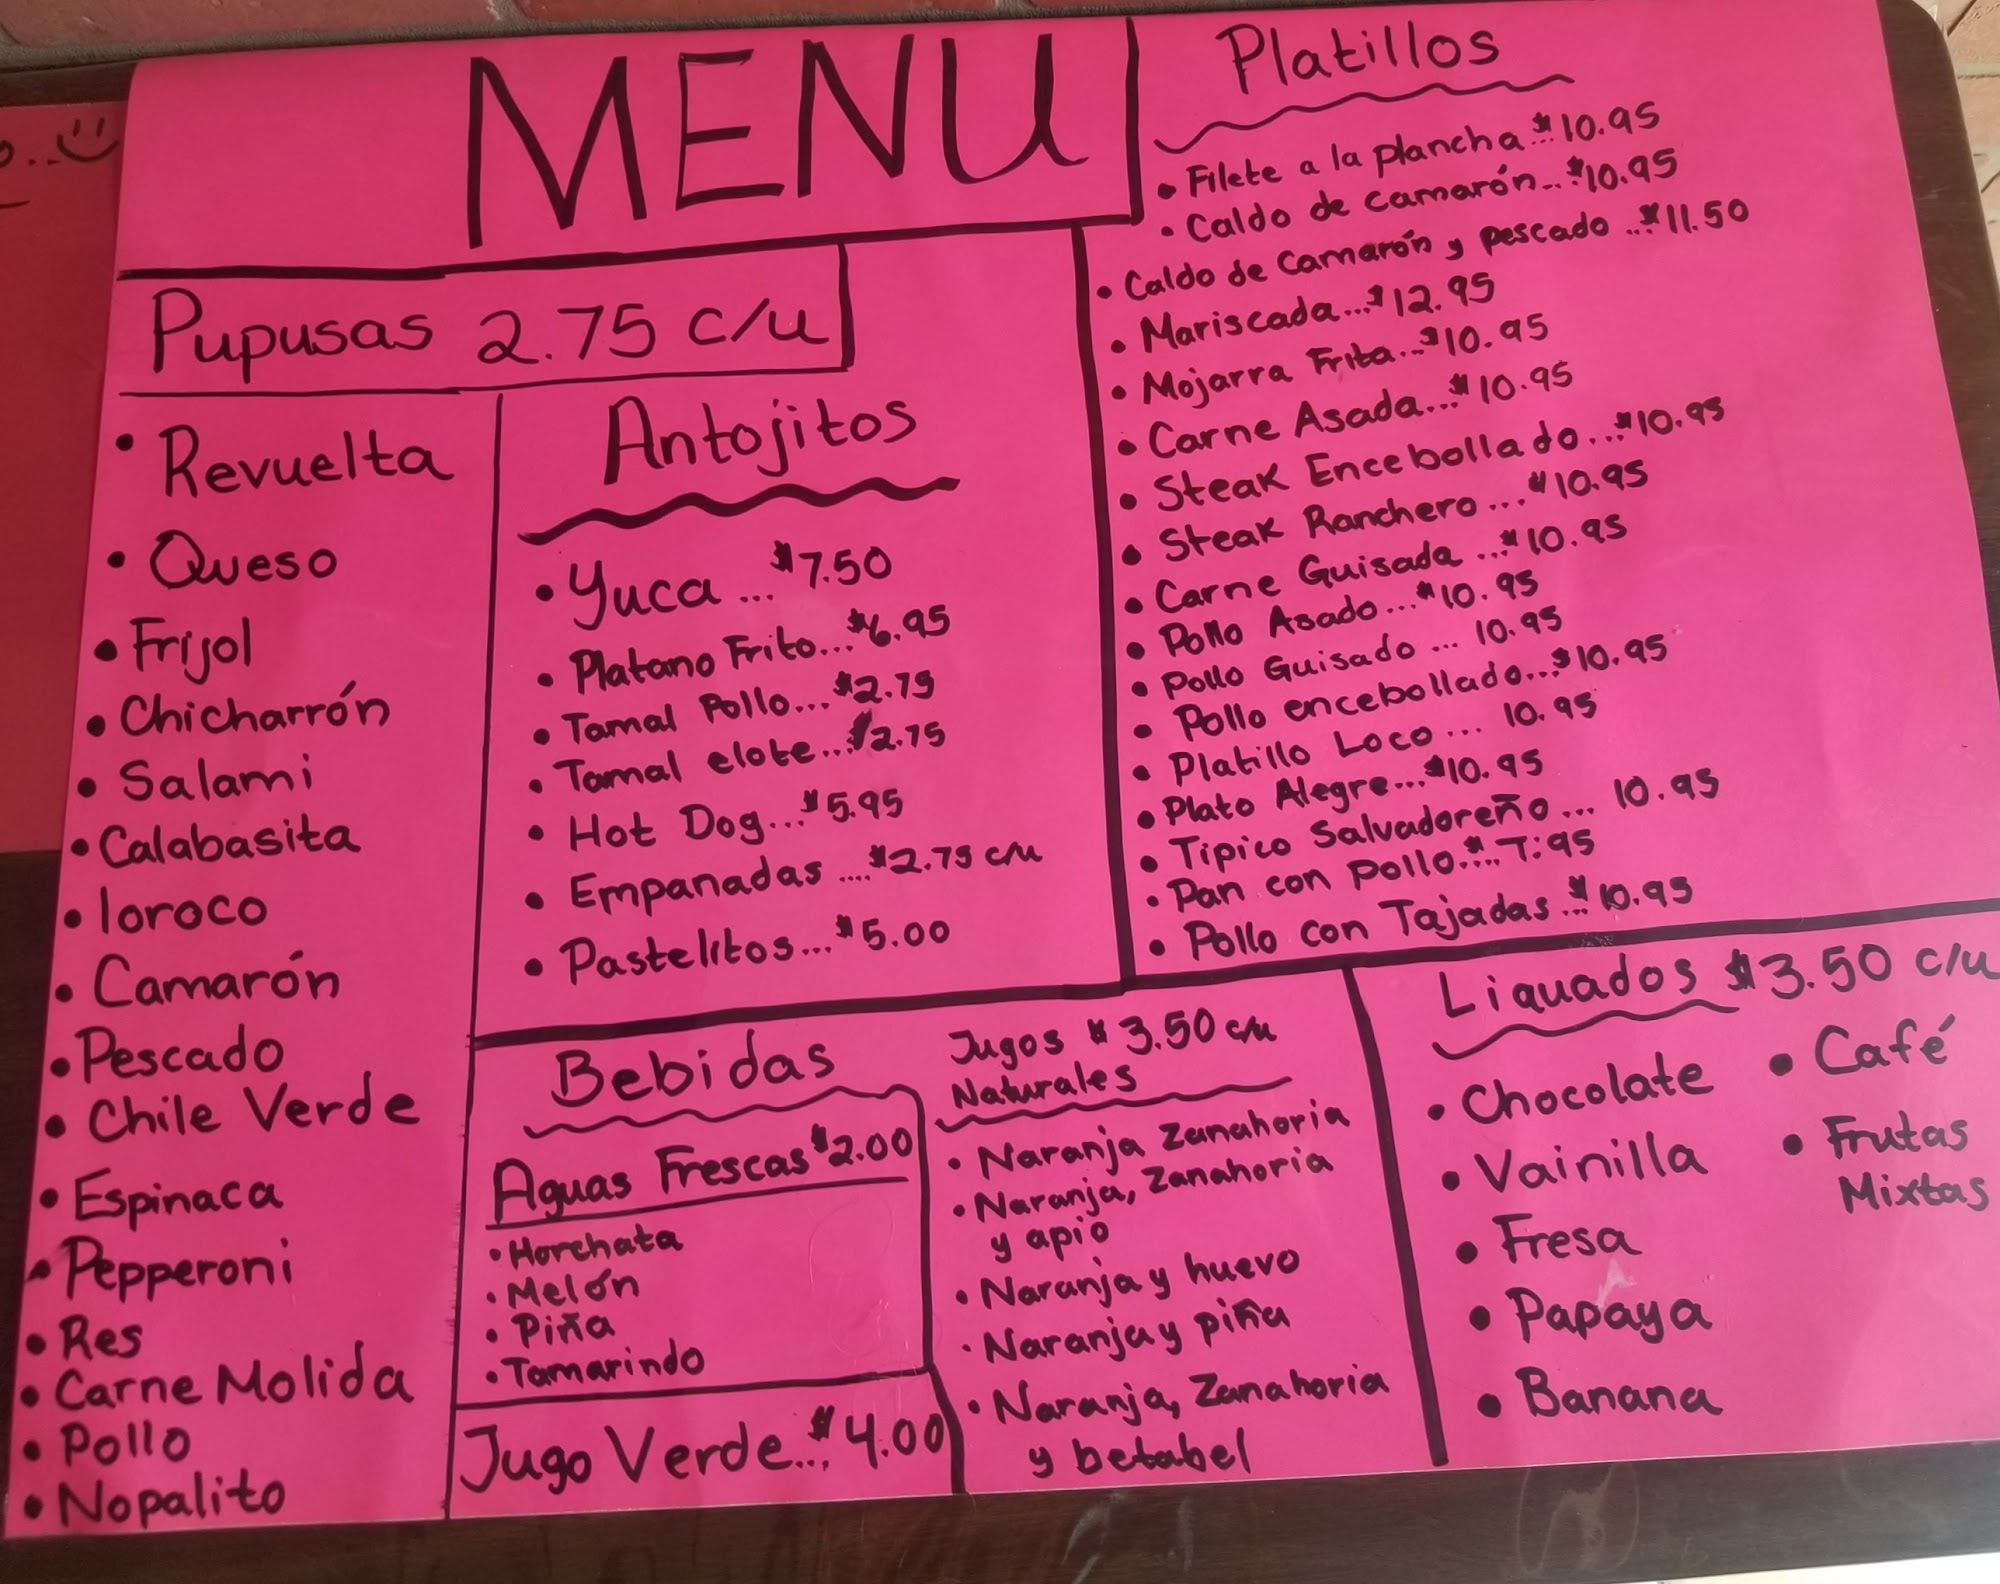 MENU
Pupusas 2.75 c/u
• Revuelta
• Queso
• Frijol
• Chicharrón
• Salami
• Calabasita
• loroco
• Camarón
• Pescado
• Chile Verde
• Espinaca
• Pepperoni
• Res
• Carne Molida
• Pollo
• Nopalito
Antojitos
• Yuca ... $7.50
• Platano Frito... $6.95
• Tamal Pollo... $2.75
• Tamal elote... $2.75
• Hot Dog... $5.95
• Empanadas .... $2.75 c/u
• Pastelitos... $5.00
Platillos
• Filete a la plancha... $10.95
• Caldo de camarón... $10.95
• Caldo de Camarón y pescado ... $11.50
• Mariscada... $12.95
• Mojarra Frita... $10.95
• Carne Asada... $10.95
• Steak Encebollado... $10.95
• Steak Ranchero ... $10.95
• Carne Guisada ... $10.95
• Pollo Asado... $10.95
• Pollo Guisado ... 10.95
• Pollo encebollado... $10.95
• Platillo Loco ... 10.95
• Plato Alegre... $10.95
• Tipico Salvadoreño ... 10.95
• Pan con pollo... $7.95
• Pollo con Tajadas... $10.95
Bebidas
Aguas Frescas $2.00
• Horchata
• Melón
• Piña
• Tamarindo
Jugo Verde... $4.00
Jugos $3.50 c/u
Naturales
• Naranja Zanahoria
• Naranja, Zanahoria
y apio
• Naranja y huevo
• Naranja y piña
• Naranja, Zanahoria
y betabel
Liquados $3.50 c/u
• Chocolate
• Vainilla
• Fresa
• Papaya
• Banana
• Café
• Frutas
Mixtas